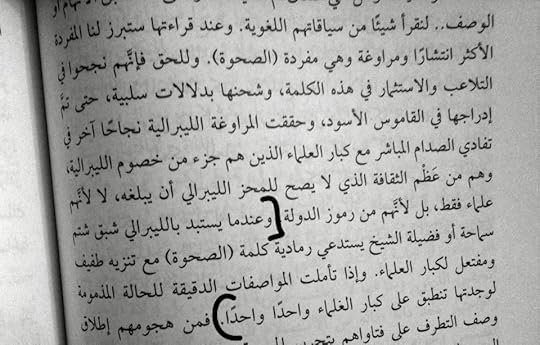 الوصف.. لنقرأ شيئًا من سياقاتهم اللغوية. وعند قراءتها ستبرز لنا المفردة
الأكثر انتشارًا ومراوغة وهي مفردة (الصحوة). وللحق فإنَّهم نجحوا في
التلاعب والاستثمار في هذه الكلمة، وشحنها بدلالات سلبية، حتى تمَّ
إدراجها في القاموس الأسود، وحققت المراوغة الليبرالية نجاحًا آخر في
تفادي الصدام المباشر مع كبار العلماء الذين هم جزء من خصوم الليبرالية،
وهم من عَظْم الثقافة الذي لا يصح للمحز الليبرالي أن يبلغه، لا لأنَّهم
علماء فقط، بل لأنَّهم من رموز الدولة [وعندما يستبد بالليبرالي شبق شتم
سماحة أو فضيلة الشيخ يستدعي رمادية كلمة (الصحوة) مع تنزيه طفيف
ومفتعل لكبار العلماء. وإذا تأملت المواصفات الدقيقة للحالة المذمومة
لوجدتها تنطبق على كبار العلماء واحدًا واحدًا.) فمن هجومهم إطلاق
وصف التطرف على فتاواهم